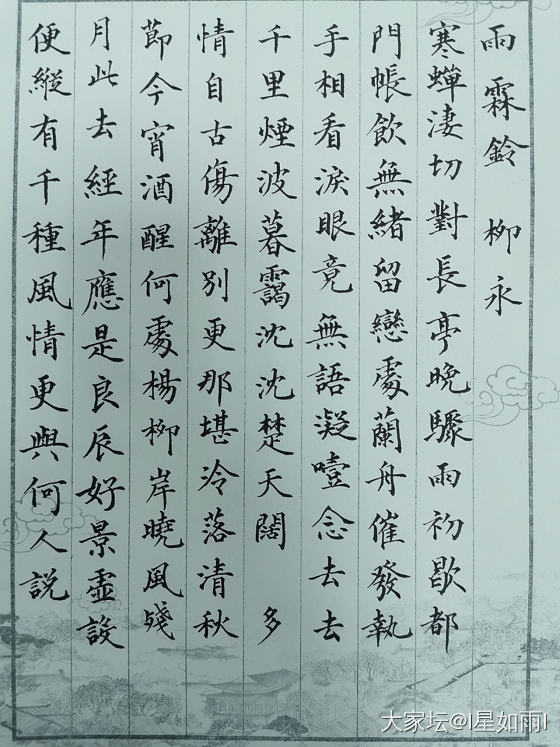 雨霖鈴 柳永
寒蟬淒切對長亭晚驟雨初歇都
門帳飲無緒留戀處蘭舟催發執
手相看淚眼竟無語凝噎念去去
千里煙波暮靄沈沈楚天闊 多
情自古傷離別更那堪冷落清秋
節今宵酒醒何處楊柳岸曉風殘
月此去經年應是良辰好景虛設
便縱有千種風情更與何人説
大家坛@I星如雨I